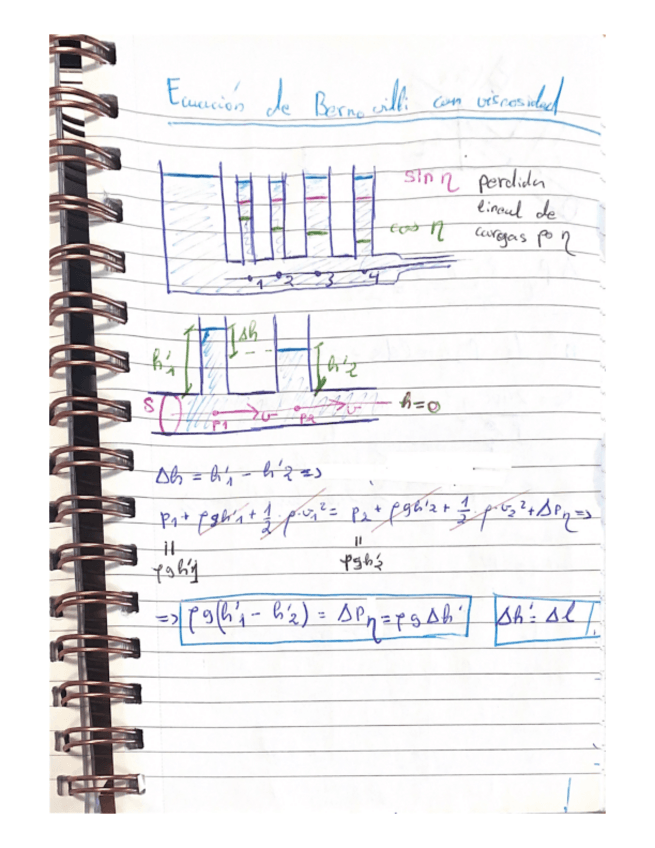 Ecuación de Bernouilli con viscosidad
sin η perdida
lineal de
con η cargas po η
1 2 3 4
h'₁ Δh h'₂
S P1 v P2 v h=0
Δh = h'₁ - h'₂ =>
P₁ + ρgh'₁ + 1/2 · ρ·v₁² = P₂ + ρgh'₂ + 1/2 · ρ·v₂² + ΔPη =>
= =
ρgh'₁ ρgh'₂
=> ρg(h'₁ - h'₂) = ΔPη = ρgΔh' Δh' : Δl